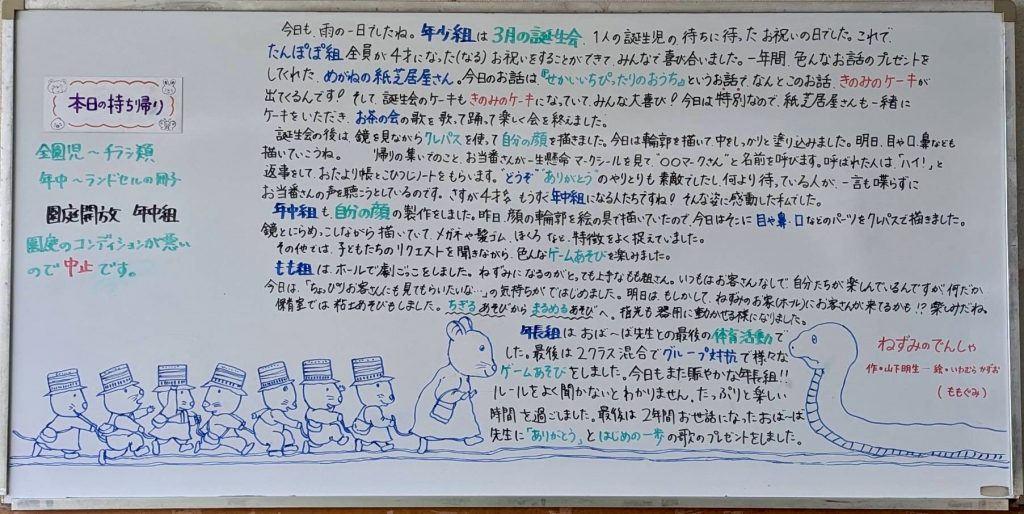 本日の持ち帰り
全園児〜チラシ類
年中〜ランドセルの冊子
園庭開放 年中組
園庭のコンディションが悪い
ので中止です。
今日も、雨の一日でしたね。年少組は3月の誕生会、1人の誕生児の待ちに待ったお祝いの日でした。これで、
たんぽぽ組全員が4才になった(なる)お祝いをすることができて、みんなで喜び合いました。一年間、色んなお話のプレゼントを
してくれた、めがねの紙芝居屋さん。今日のお話は、『せかいいちぴったりのおうち』というお話で、なんとこのお話、きのみのケーキが
出てくるんです!そして、誕生会のケーキもきのみのケーキになっていて、みんな大喜び!今日は特別なので、紙芝居屋さんも一緒に
ケーキをいただき、お茶の会の歌を歌って踊って楽しく会を終えました。
誕生会の後は、鏡を見ながらクレパスを使って自分の顔を描きました。今日は輪郭を描いて中をしっかりと塗り込みました。明日、目や口、鼻なども
描いていこうね。 帰りの集いでのこと、お当番さんが一生懸命マークシールを見て、"○○マークさん"と名前を呼びます。呼ばれた人は、「ハイ!」と
返事をして、おたより帳とこひつじノートをもらいます。"どうぞ""ありがとう"のやりとりも素敵でしたし、何より待っている人が、一言も喋らずに
お当番さんの声を聴こうとしているのです。さすが4才、もうすぐ年中組になる人たちですね!そんな姿に感動した私でした。
年中組も、自分の顔の製作をしました。昨日、顔の輪郭を絵の具で描いていたので、今日はそこに目や鼻、口などのパーツをクレパスで描きました。
鏡とにらめっこしながら描いていて、メガネや髪ゴム、ほくろなど、特徴をよく捉えていました。
その他では、子どもたちのリクエストを聞きながら、色んなゲームあそびを楽しみました。
もも組は、ホールで劇ごっこをしました。ねずみになるのがとっても上手なもも組さん。いつもはお客さんなしで、自分たちが楽しんでいるんですが、何だか
今日は、「ちょっぴりお客さんにも見てもらいたいな…」の気持ちがでてはじめました。明日は、もしかして、ねずみのお家(ホール)にお客さんが来てるかも!?楽しみだね。
保育室では粘土あそびもしました。ちぎるあそびからまるめるあそびへ。指先も器用に動かせる様になりました。
年長組は、おば〜ば先生との最後の体育活動で
した。最後は2クラス混合でグループ対抗で様々な
ゲームあそびをしました。今日もまた賑やかな年長組!!
ルールをよく聞かないとわかりません。たっぷりと楽しい
時間を過ごしました。最後は、2年間お世話になったおば〜ば
先生に「ありがとう」とはじめの一歩の歌のプレゼントをしました。
ねずみのでんしゃ
作・山下明生 絵・いわむらかずお
(ももぐみ)